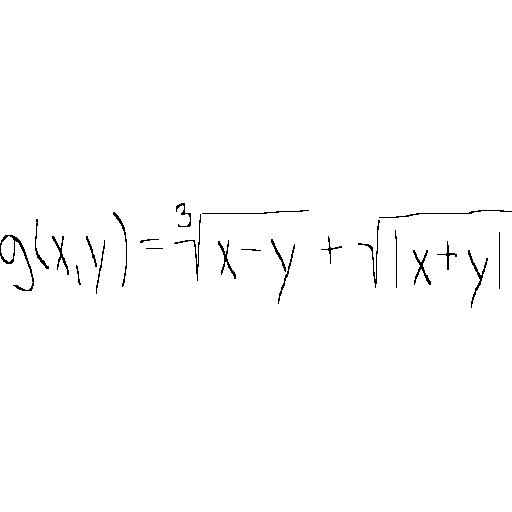 g(x,y) = ∛(x-y) + √|x+y|